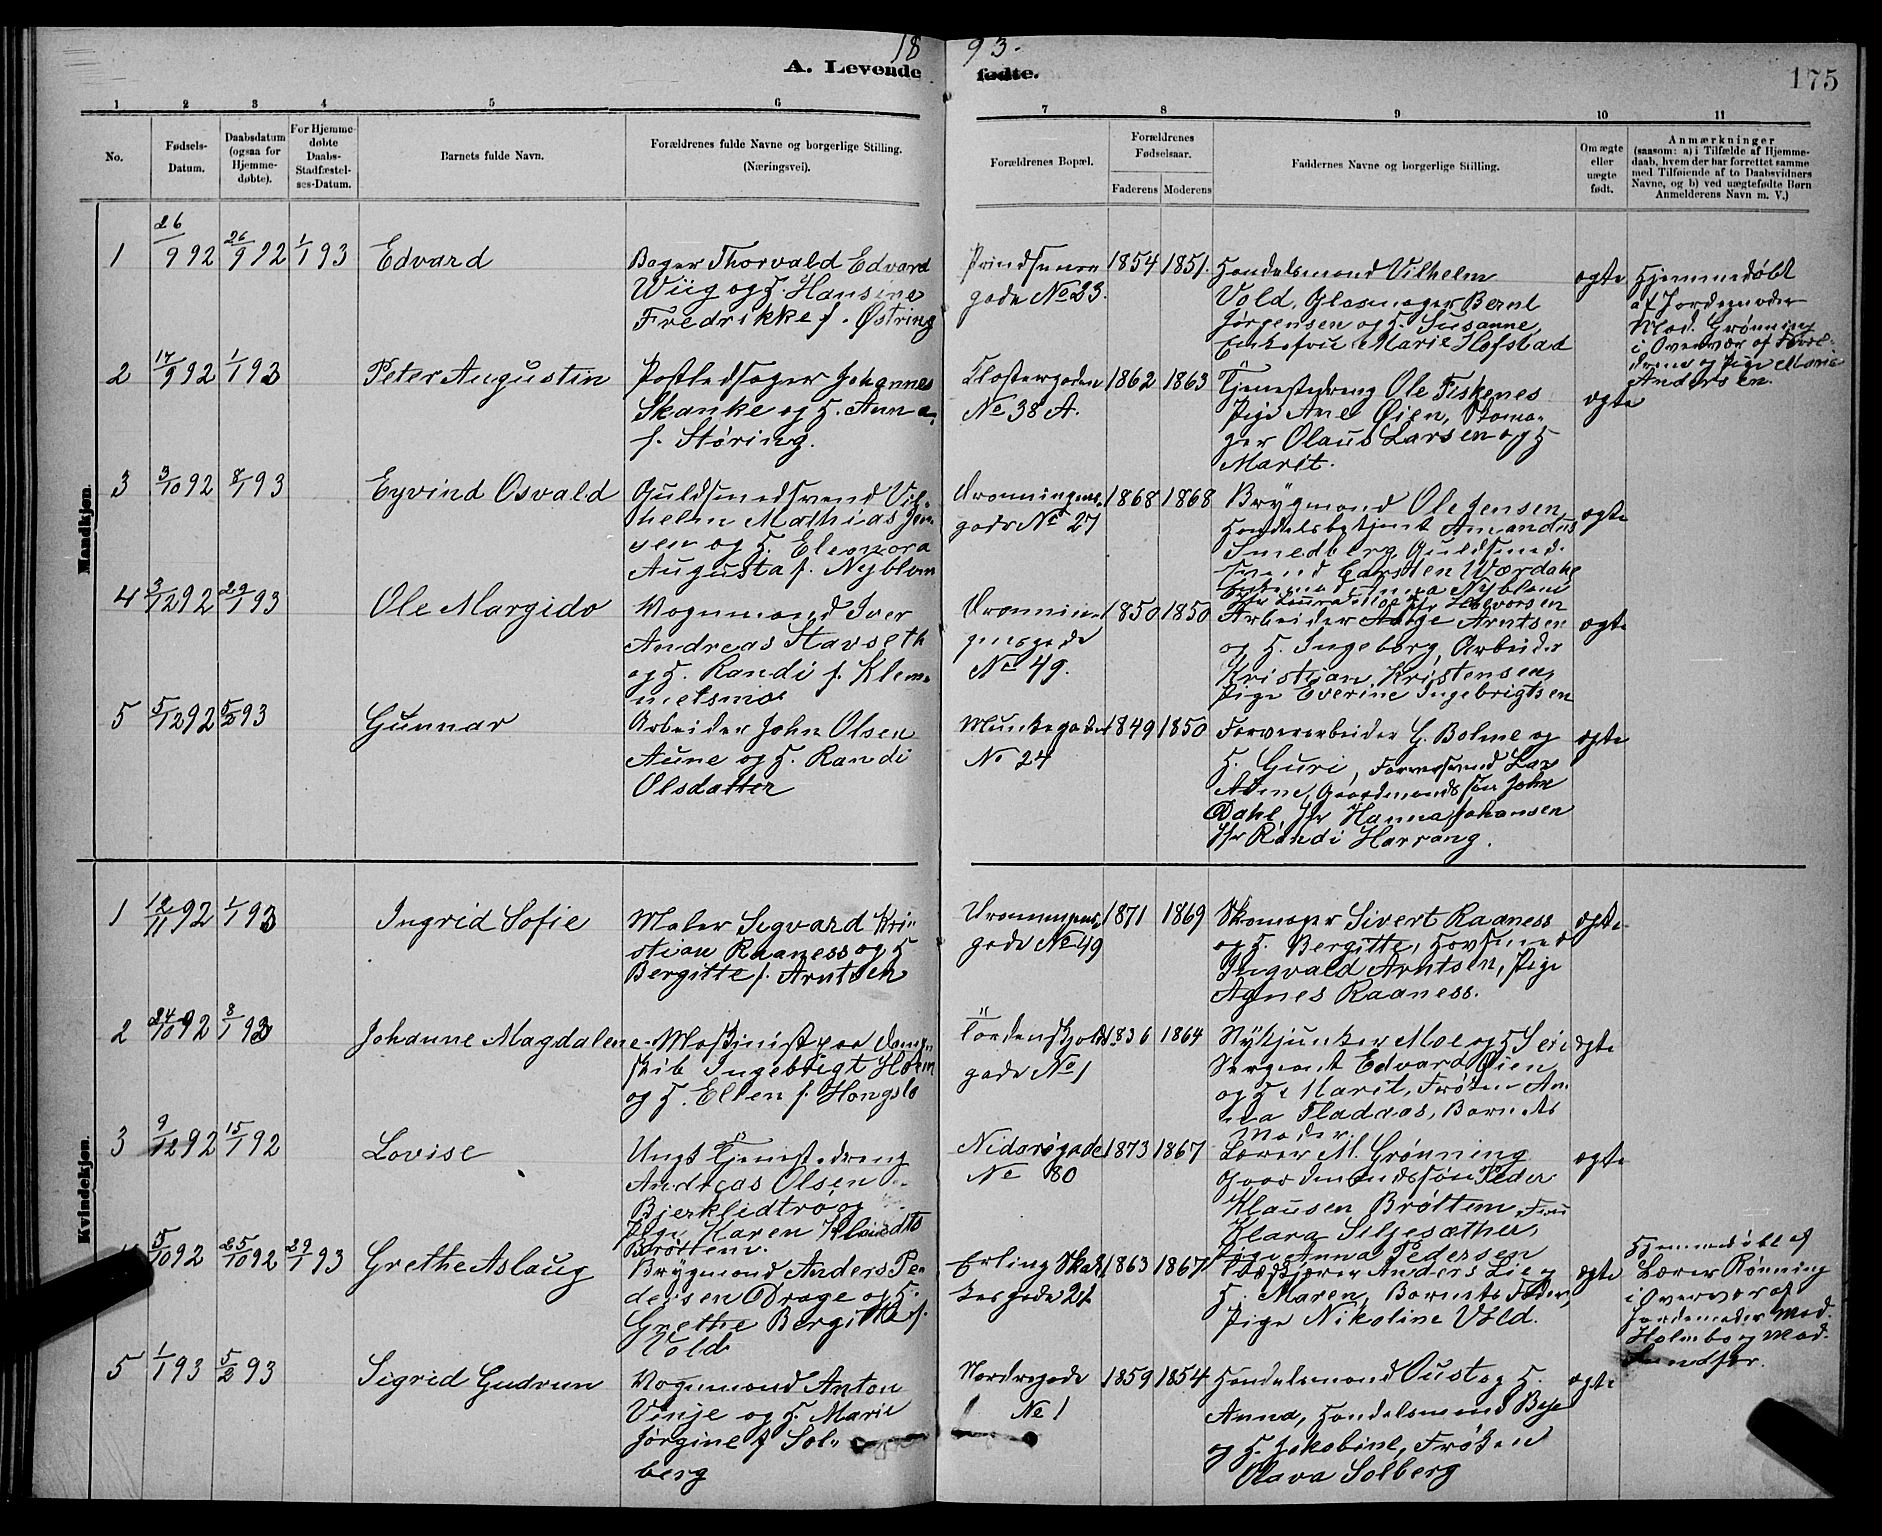 1893.
A. Levende fødte.
175
1 2 3 4 5 6 7 8 9 10 11
No.
Fødsels-Datum.
Daabsdatum (ogsaa for Hjemme-døbte).
For Hjemme-døbte Daabs-Stadfæstel-ses-Datum.
Barnets fulde Navn.
Forældrenes fulde Navne og borgerlige Stilling. (Næringsvei).
Forældrenes Bopæl.
Forældrenes Fødselsaar.
Faderens Moderens
Faddernes Navne og borgerlige Stilling.
Om ægte eller uægte født.
Anmærkninger
(saasom: a) i Tilfælde af Hjemme-
daab, hvem der har forrettet samme
med Tilføiende af to Daabsvidners
Navne, og b) ved uægtefødte Børn
Anmelderens Navn m. V.)
Mandkjøn.
1 26/9 92 26/9 92 1/1 93 Edvard
Bager Thorvald Edvard
Wiig og H. Hansine
Fredrikke f. Østring
Prindsens
gade No 23.
1854 1851.
Handelsmand Vilhelm
Vold, Glasmager Bernt
Jørgensen og H. Susanne,
Marie Hofstad
ægte
Hjemmedøbt
af Jordemoder
Mad. Grønning
i Overvær af Foræl-
drene og Pige Marie
Andersen.
2 17/9 92 1/1 93 Peter Augustin
Postledsager Johannes
Skanke og H. Anna
f. Støring.
Klostergaden
No 38 A.
1862 1863
Tjenestedreng Ole Fiskenes
Pige Ane Øien, Skoma-
ger Olaus Larsen og H
Marit.
ægte
3 3/10 92 8/1 93 Eyvind Osvald
Guldsmedsvend Vil-
helm Mathias Jen-
sen og H. Eleonora
Augusta f. Nyblom
Dronningens
gade No 27
1868 1868
Brygmand Ole Jensen
Handelsbetjent Amandus
Smedberg, Guldsmed-
svend Carsten Værdahl
Anna Nyblom
ægte
4 3/12 92 29/1 93 Ole Margido
Vognmand Iver
Andreas Stavseth
og H. Randi f. Klem-
metsmo
Dronnin-
gensgade
No 49.
1850 1850
Halvorsen
Arbeider Aage Arntsen
og H. Ingeborg, Arbeider
Kristian Kristensen,
Pige Everine Ingebrigtsen
ægte
5 5/12 92 5/2 93 Gunnar
Arbeider John Olsen
Aune og H. Randi
Olsdatter
Munkegaden
No 24
1849 1850
Farverarbeider G. Bolme og
H. Guri, Farversvend Lars
Aune, Gaardmandssøn John
Dahl, Jfr Hanna Johansen
Jfr Randi Harrang.
ægte
Kvindekjøn.
1 12/11 92 1/1 93 Ingrid Sofie
Maler Sigvard Kri-
stian Raaness og H
Bergitte f. Arntsen
Dronningens
gade No 49
1871 1869
Skomager Sivert Raaness
og H. Bergitte, Hovsmed
Ingvald Arntsen, Pige
Agnes Raaness.
ægte
2 24/10 92 8/1 93 Johanne Magdalene
Maskinist paa Damp-
skib Ingebrigt Holm
og H. Ellen f. Hongslo
Tordenskjolds
gade No 1
1836 1864
Moe og H Seri
Sergeant Edvard Øien
og H Marit, Frøken An-
na Fladaas, Barnets
Moder.
ægte
3 9/12 92 15/1 92 Lovise
Ungk Tjenestedreng
Andreas Olsen
Bjerklidtrø og
Pige Karen Klausdtr
Brøttem.
Nidarøgade
No 80
1873 1867
Lærer M. Grønning
Gaardmandssøn Peder
Klausen Brøttem, Fru
Klara Siljesæther,
Pige Anna Pedersen
ægte
4 5/10 92 25/10 92 29/1 93 Grethe Aslaug
Brygmand Anders Pe-
dersen Drage og H.
Grethe Bergitte f.
Vold
Erling Skak-
kes gade 21
1863 1867
Anders Lie og
H. Maren, Barnets Fader,
Pige Nikoline Vold.
ægte
Hjemmedøbt af
Lærer Rønning
i Overvær af
Jordemoder Mad.
Holmbo og Mad.
5 1/1 93 5/2 93 Sigrid Gudrun
Vognmand Anton
Vinje og H. Marie
Jørgine f Sol-
berg
Nordregade
No 1
1859 1854
Handelsmand Oust og H.
Anna, Handelsmand Bye
og H. Jakobine, Frøken
Olava Solberg
ægte